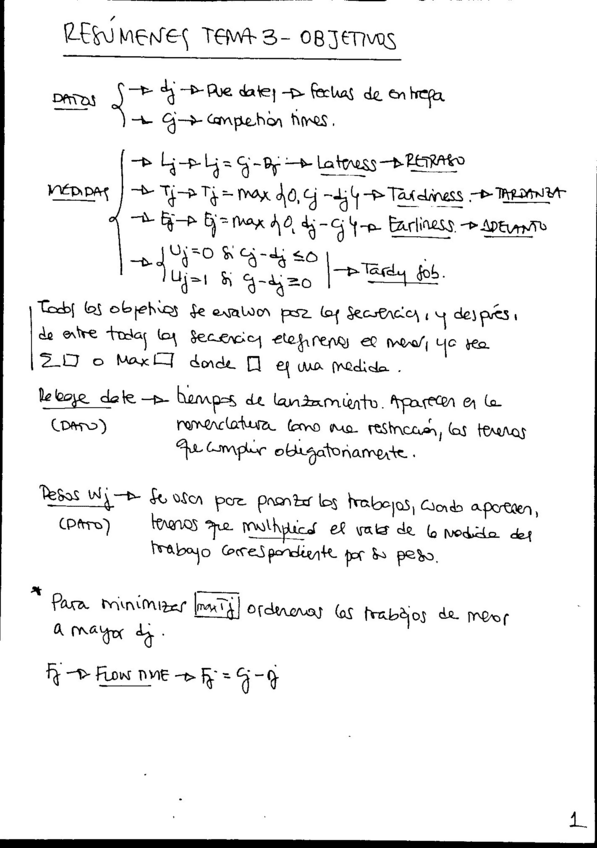 RESÚMENES TEMA 3 - OBJETIVOS
DATOS { → dj → Due dates → fechas de entrega
→ Cj → completion times.
MEDIDAS { → Lj → Lj = Cj - Dj → Lateness → RETRASO
→ Tj → Tj = max {0, Cj - dj} → Tardiness. → TARDANZA
→ Ej → Ej = max {0, dj - Cj} → Earliness. → ADELANTO
→ { Uj = 0 si Cj - dj ≤ 0
Uj = 1 si Cj - dj ≥ 0 | → Tardy job.
Todos los objetivos se evaluan para las secuencias, y después,
de entre todas las secuencias elegiremos el menor, ya sea
Σ□ o Max□ donde □ es una medida.
Release date → tiempos de lanzamiento. Aparecen en la
(DATO) nomenclatura como una restricción, los tenemos
que cumplir obligatoriamente.
Pesos Wj → Se usan para priorizar los trabajos, cuando aparecen,
(DATO) tenemos que multiplicar el valor de la medida del
trabajo correspondiente por su peso.
* Para minimizar max Tj ordenamos los trabajos de menor
a mayor dj.
Fj → FLOW TIME → Fj = Cj - rj
1